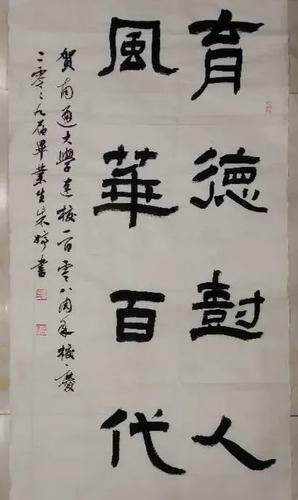 育德尌人
風華百代
賀南通大學建校一百零八周年校慶
二零〻九届畢業生朱婷書